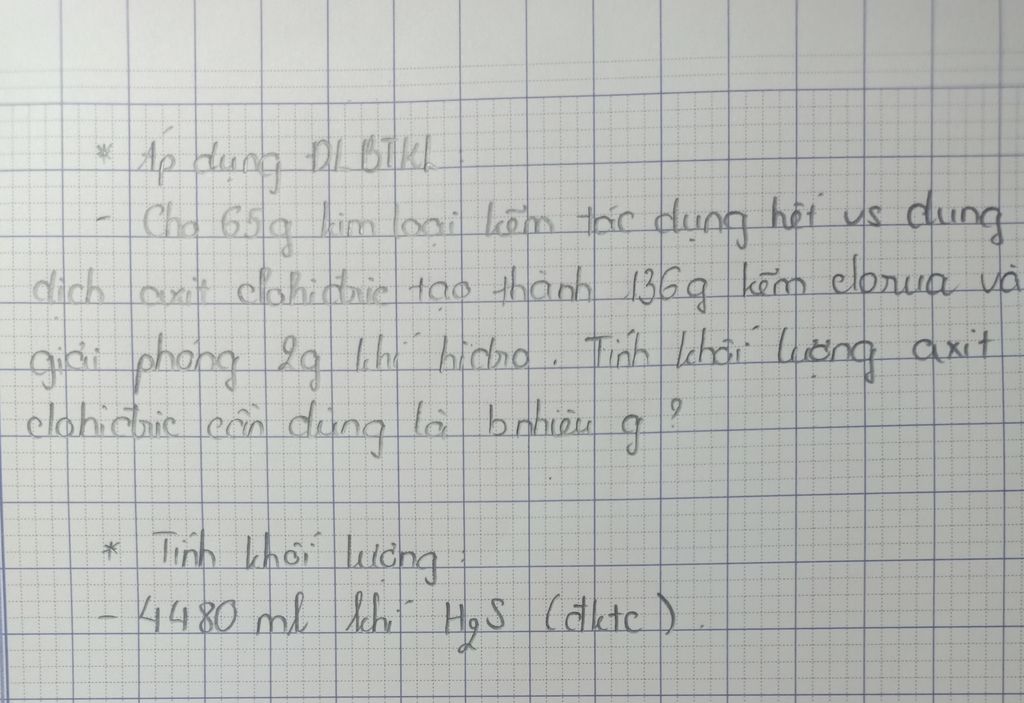 * Áp dụng ĐLBTKL
- Cho 65g kim loại kẽm tác dụng hết vs dung
dịch axit clohiđric tạo thành 136g kẽm clorua và
giải phóng 2g khí hiđro. Tính khối lượng axit
clohiđric cần dùng là bnhiêu g?
* Tính khối lượng
- 4480 ml khí H₂S (đktc).